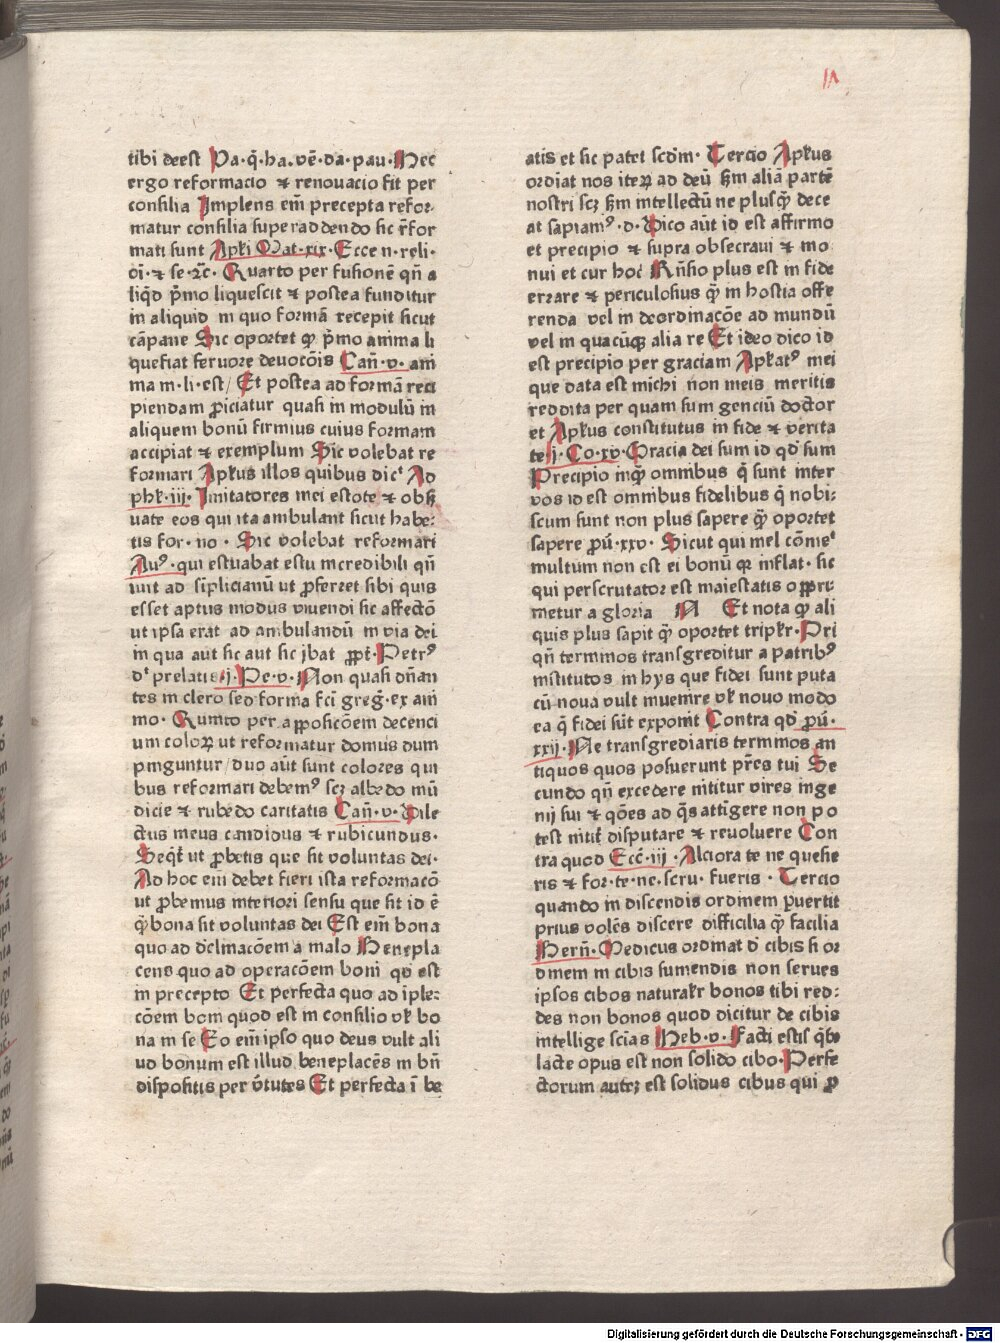 tibi deest Va·q̄·ha·vē·da·pau·Hec
ergo reformacio ⁊ renouacio fit per
consilia Implens em̄ precepta refor⸗
matur consilia superaddendo sic r̄for
mati sunt Apl̄i Mat·xix·Ecce n·reli·
oī·⁊ se·⁊c̄· Quarto per fusionē qn̄ a
liq̄d p̄mo liquescit ⁊ postea funditur
in aliquid in quo formā recepit sicut
cāpane Sic oportet ꝙ p̄mo anima li
quefiat feruore deuocōis Can̄·v·ani
ma m·li·est/ Et postea ad formā reci
piendam ꝓiciatur quasi in modulū in
aliquem bonū firmius cuius formam
accipiat ⁊ exemplum Sic volebat re
formari Apl̄us illos quibus dicᵗ Ad
phl̄·iii·Imitatores mei estote ⁊ obẜ
uate eos qui ita ambulant sicut habe⸗
tis for·no· Sic volebat reformari
Auꝰ·qui estuabat estu incredibili qn̄
iuit ad sīplicianū ut ꝓferret sibi quis
esset aptus modus viuendi sic affectō
ut ipsa erat ad ambulandū in via dei
in qua aut sic aut sic jbat ꝓpt̄·Petrꝰ
dᵗ prelatis·j·Pe·v·Non quasi dn̄an
tes in clero sed forma fc̄i greḡ·ex ani
mo·Quinto per apposicōem decenci
um coloꝝ ut reformatur domus dum
pinguntur/duo aūt sunt colores qui
bus reformari debemꝰ scꝫ albedo mū
dicie ⁊ rubedo caritatis Can̄·v·Dile
ctus meus candidus ⁊ rubicundus·
Seqr̄ ut ꝓbetis que sit voluntas dei·
Ad hoc em̄ debet fieri ista reformacō
ut ꝓbemus interiori sensu que sit id ē
q̄ bona sit voluntas dei Est em̄ bona
quo ad declinacōem a malo Benepla
cens quo ad operacōem boni qd̄ est
in precepto Et perfecta quo ad īple⸗
cōem boni quod est in consilio vl̄ bo
na in se Eo em̄ ipso quo deus vult ali
ud bonum est illud beneplacēs in bn̄
dispositis per v̄tutes Et perfecta ī be
atis et sic patet scdm̄· Tercio Apl̄us
ordīat nos iteꝝ ad deū ẜm aliā partē
nostri scꝫ ẜm intellectū ne plusq̄ꝫ dece
at sapiamꝰ·d·Dico aūt id est affirmo
et precipio ⁊ supra obsecraui ⁊ mo
nui et cur hoc Rn̄sio plus est in fide
errare ⁊ periculosius q̄ꝫ in hostia offe
renda vel in deordinacōe ad mundū
vel in quacūqꝫ alia re Et ideo dico id
est precipio per graciam Apl̄atꝰ mei
que data est michi non meis meritis
reddita per quam sum genciū doctor
et Apl̄us constitutus in fide ⁊ verita
te·j·Co·xv·Gracia dei sum id qd̄ sum
Precipio inq̄ꝫ omnibus q̄ sunt inter
vos id est omnibus fidelibus q̄ nobi⸗
scum sunt non plus sapere q̄ꝫ oportet
sapere ꝓū·xxv· Sicut qui mel cōmeᵗ
multum non est ei bonū qꝛ inflat·sic
qui perscrutator est maiestatis oppri
metur a gloria N Et nota ꝙ ali
quis plus sapit q̄ꝫ oportet triplr̄·Pri
qn̄ terminos transgreditur a patribꝰ
institutos in hys que fidei sunt puta
cū noua vult inuenire vl̄ nouo modo
ea q̄ fidei sūt exponit Contra qd̄ ꝓū·
xxij·Ne transgrediaris terminos an
tiquos quos posuerunt pr̄es tui Se
cundo qn̄ excedere nititur vires inge
nij sui ⁊ qōes ad q̄s attīgere non po
test nitit̄ disputare ⁊ reuoluere Con
tra quod Ecc̄·iij·Alciora te ne quesie
ris ⁊ for·te·ne·scru·fueris· Tercio
quando in discendis ordinem ꝑuertit
prius volēs discere difficilia q̄ꝫ facilia
Bern̄·Medicus ordinat d̄ cibis si or
dinem in cibis sumendis non serues
ipsos cibos naturalr̄ bonos tibi red⸗
des non bonos quod dicitur de cibis
intellige scīas Heb·v·Facti estis qͥbꝰ
lacte opus est non solido cibo·Perfe
ctorum auteꝫ est solidus cibus qui ꝓ
Digitalisierung gefördert durch die Deutsche Forschungsgemeinschaft - DFG